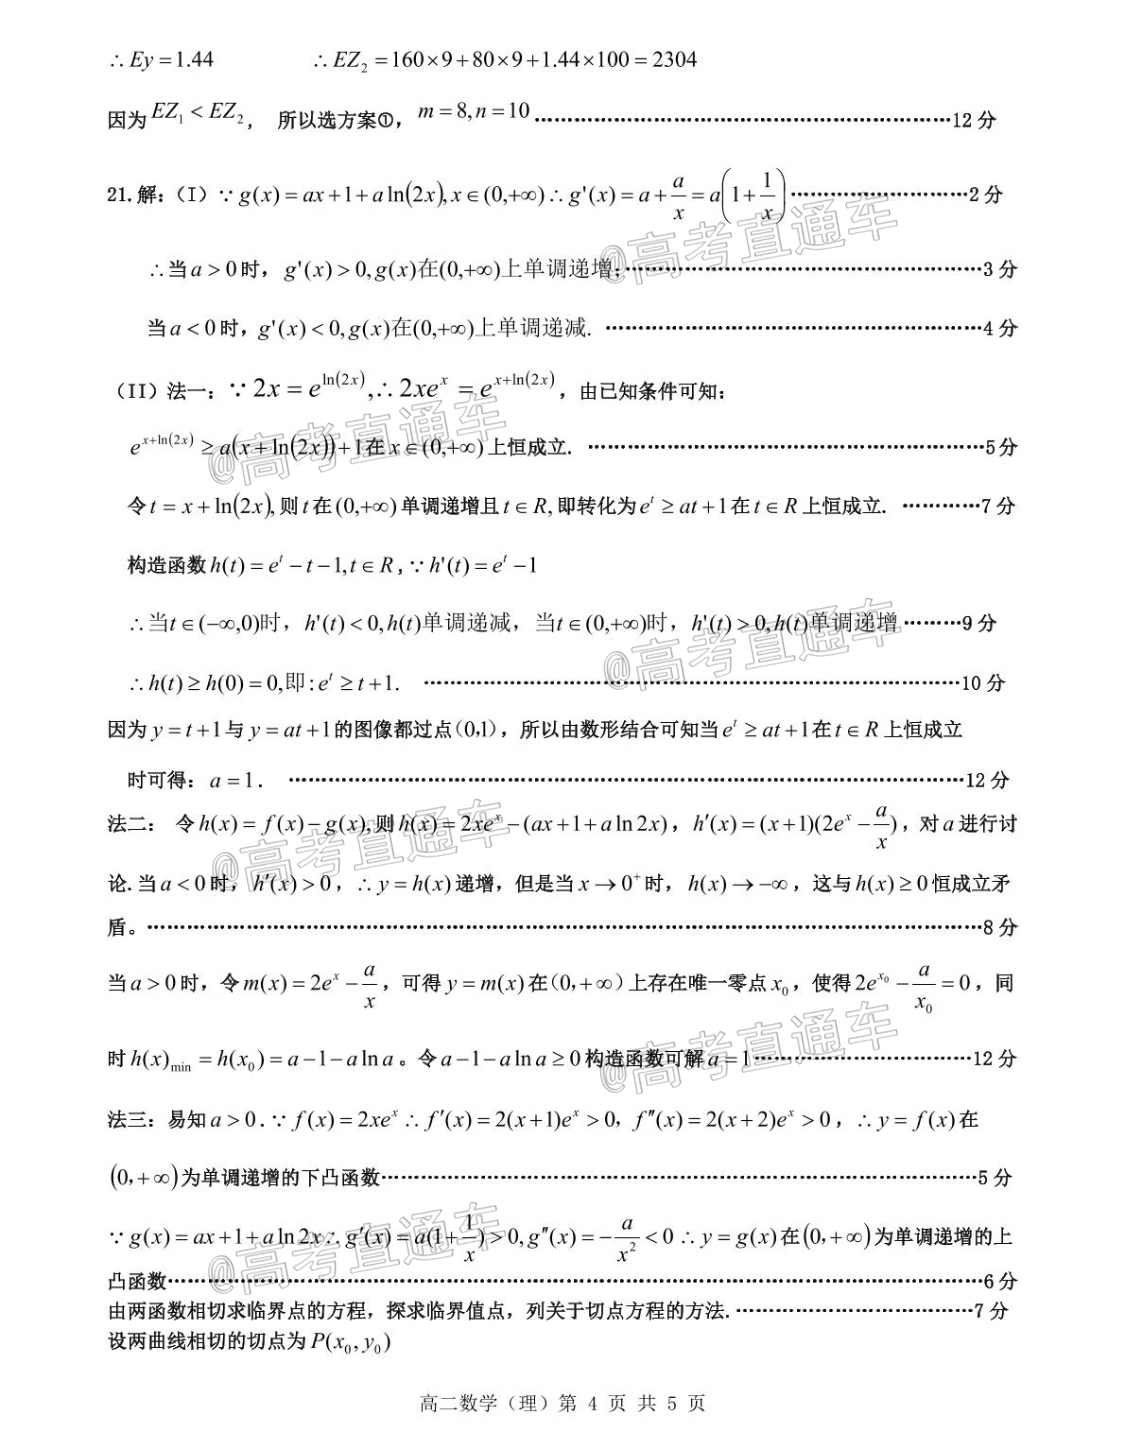 ∴Ey=1.44 ∴EZ₂=160×9+80×9+1.44×100=2304
因为EZ₁<EZ₂, 所以选方案①, m=8,n=10…………………………………………………12分
21.解:(I)∵g(x)=ax+1+aln(2x),x∈(0,+∞)∴g'(x)=a+a/x=a(1+1/x)……………………2分
∴当a>0时,g'(x)>0,g(x)在(0,+∞)上单调递增;……………………………………………3分
当a<0时,g'(x)<0,g(x)在(0,+∞)上单调递减.……………………………………………4分
(II)法一:∵2x=e^{ln(2x)},∴2xe^x=e^{x+ln(2x)},由已知条件可知:
e^{x+ln(2x)}≥a(x+ln(2x))+1在x∈(0,+∞)上恒成立.………………………………………………5分
令t=x+ln(2x),则t在(0,+∞)单调递增且t∈R,即转化为e^t≥at+1在t∈R上恒成立.…………7分
构造函数h(t)=e^t-t-1,t∈R,∵h'(t)=e^t-1
∴当t∈(-∞,0)时,h'(t)<0,h(t)单调递减,当t∈(0,+∞)时,h'(t)>0,h(t)单调递增………9分
∴h(t)≥h(0)=0,即:e^t≥t+1.…………………………………………………………………10分
因为y=t+1与y=at+1的图像都过点(0,1),所以由数形结合可知当e^t≥at+1在t∈R上恒成立
时可得:a=1.…………………………………………………………………………………12分
法二: 令h(x)=f(x)-g(x),则h(x)=2xe^x-(ax+1+aln2x),h′(x)=(x+1)(2e^x-a/x),对a进行讨
论.当a<0时,h′(x)>0,∴y=h(x)递增,但是当x→0⁺时,h(x)→-∞,这与h(x)≥0恒成立矛
盾。……………………………………………………………………………………………………8分
当a>0时,令m(x)=2e^x-a/x,可得y=m(x)在(0,+∞)上存在唯一零点x₀,使得2e^{x₀}-a/x₀=0,同
时h(x)min=h(x₀)=a-1-alna。令a-1-alna≥0构造函数可解a=1…………………………12分
法三:易知a>0.∵f(x)=2xe^x∴f′(x)=2(x+1)e^x>0,f″(x)=2(x+2)e^x>0,∴y=f(x)在
(0,+∞)为单调递增的下凸函数…………………………………………………………………………5分
∵g(x)=ax+1+aln2x∴g′(x)=a(1+1/x)>0,g″(x)=-a/x²<0∴y=g(x)在(0,+∞)为单调递增的上
凸函数……………………………………………………………………………………………………6分
由两函数相切求临界点的方程,探求临界值点,列关于切点方程的方法.……………………………7分
设两曲线相切的切点为P(x₀,y₀)
高二数学(理)第 4 页 共 5 页
@高考直通车
@高考直通车
@高考直通车
@高考直通车
@高考直通车
@高考直通车